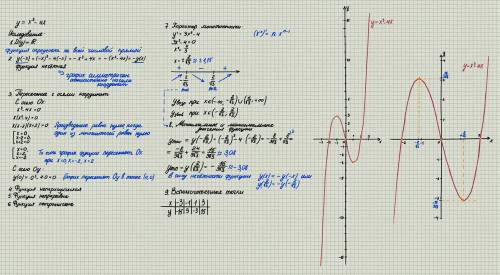 y = x³ - 4x
Исследование
1. D(y) = R
функция определена на всей числовой прямой
2. y(-x) = (-x)³ - 4(-x) = -x³ + 4x = -(x³ - 4x) = -y(x)
функция нечётная
⇒ график симметричен относительно начала координат
3. Пересечение с осями координат
С осью Ox:
x³ - 4x = 0
x(x² - 4) = 0
x(x-2)(x+2) = 0
Произведение равно нулю когда один из множителей равен нулю
x = 0
x - 2 = 0
x + 2 = 0
x = 0
x = 2
x = -2
То есть график функции пересекает Ox при x = 0, x = -2, x = 2
С осью Oy:
y(0) = 0³ - 4·0 = 0 График пересекает Oy в точке (0;0)
4. Функция непериодическая
5. Функция непрерывна
6. Функция
7. Характер монотонности
(xⁿ)' = n xⁿ⁻¹
y' = 3x² - 4
3x² - 4 = 0
x² = 4/3
x = ± 2/√3 ≈ ± 1,15
+ - +
-2/√3 2/√3
Увыв при x ∈ (-∞; -2/√3) ∪ (2/√3; +∞)
Убыв при x ∈ (-2/√3; 2/√3)
8. Минимальное и максимальное значения функции
9. Вспомогательные точки
x | -3 | -1 | 1 | 3
y | -15 | 3 | -3 | 15
y = x³ - 4x
y = x³ - 4x